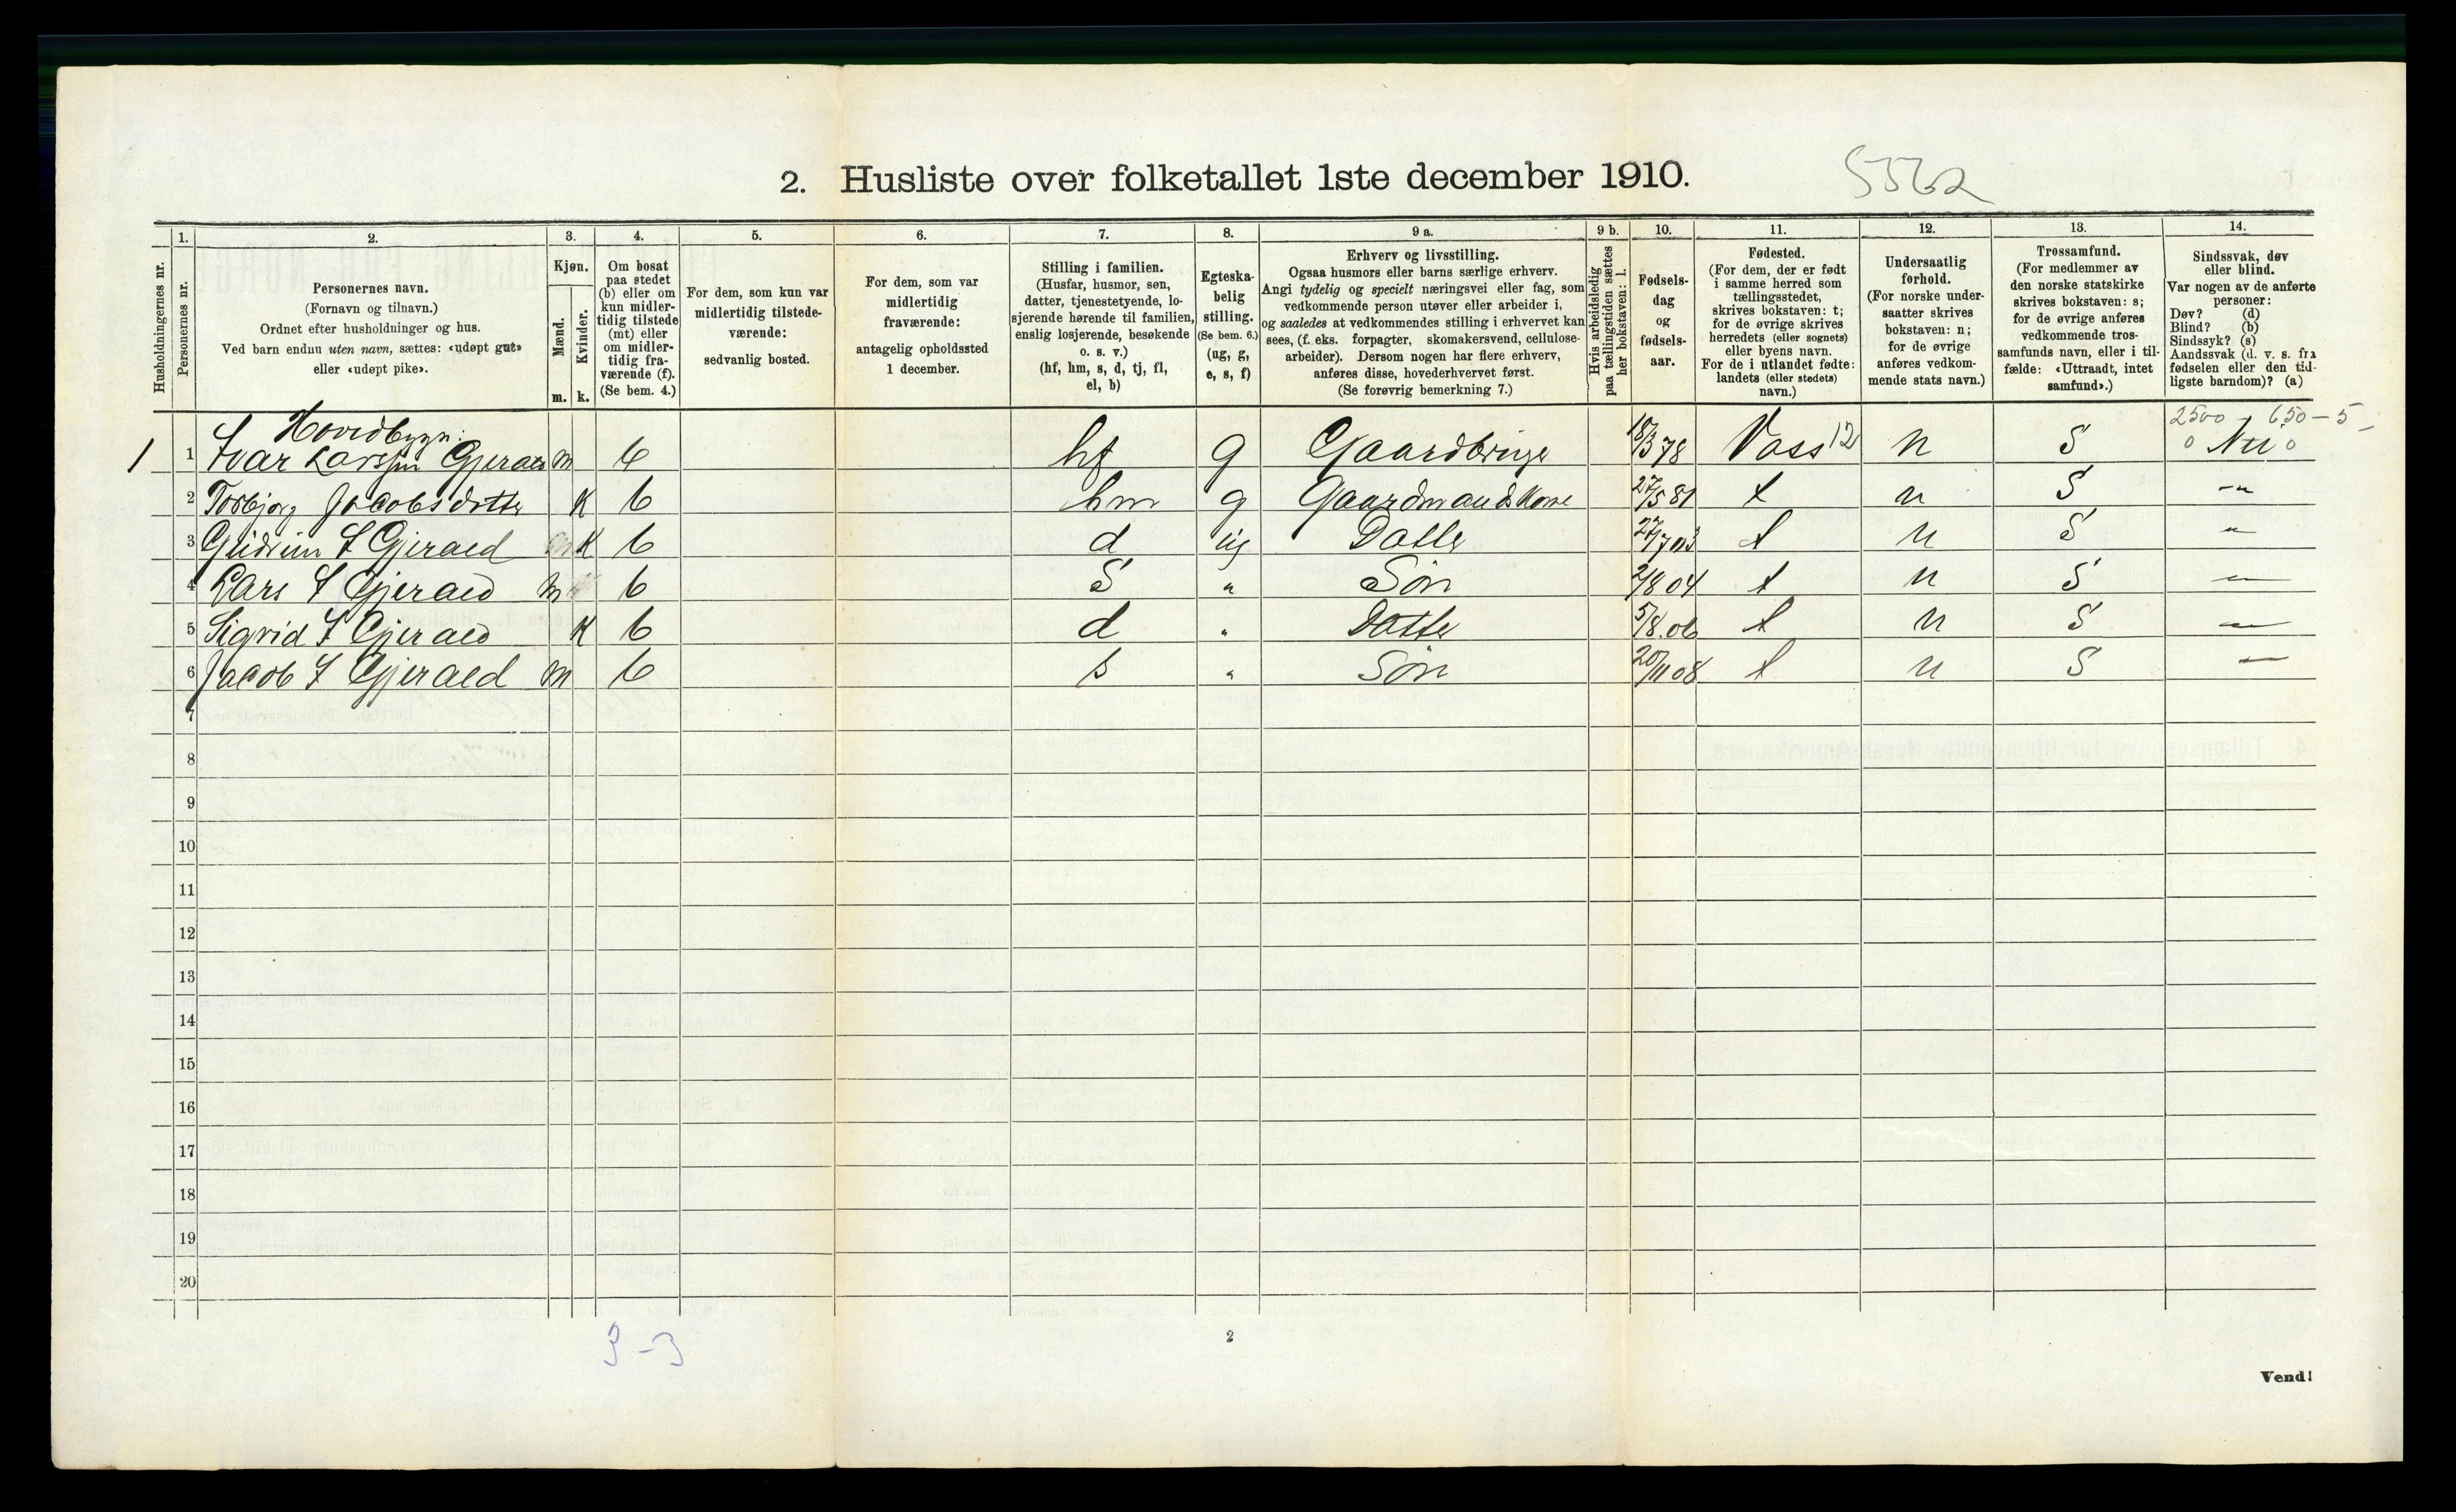 2. Husliste over folketallet 1ste december 1910.
5562
Husholdningernes nr.
1.
Personernes nr.
2.
Personernes navn.
(Fornavn og tilnavn.)
Ordnet efter husholdninger og hus.
Ved barn endnu uten navn, sættes: «udøpt gut»
eller «udøpt pike».
3.
Kjøn.
Mænd.
Kvinder.
m. k.
4.
Om bosat
paa stedet
(b) eller om
kun midler-
tidig tilstede
(mt) eller
om midler-
tidig fra-
værende (f).
(Se bem. 4.)
5.
For dem, som kun var
midlertidig tilstede-
værende:
sedvanlig bosted.
6.
For dem, som var
midlertidig
fraværende:
antagelig opholdssted
1 december.
7.
Stilling i familien.
(Husfar, husmor, søn,
datter, tjenestetyende, lo-
sjerende hørende til familien,
enslig losjerende, besøkende
o. s. v.)
(hf, hm, s, d, tj, fl,
el, b)
8.
Egteska-
belig
stilling.
(Se bem. 6.)
(ug, g,
e, s, f)
9 a.
Erhverv og livsstilling.
Ogsaa husmors eller barns særlige erhverv.
Angi tydelig og specielt næringsvei eller fag, som
vedkommende person utøver eller arbeider i,
og saaledes at vedkommendes stilling i erhvervet kan
sees, (f. eks. forpagter, skomakersvend, cellulose-
arbeider). Dersom nogen har flere erhverv,
anføres disse, hovederhvervet først.
(Se forøvrig bemerkning 7.)
9 b.
Hvis arbeidsledig
paa tællingstiden sættes
her bokstaven: l.
10.
Fødsels-
dag
og
fødsels-
aar.
11.
Fødested.
(For dem, der er født
i samme herred som
tællingsstedet,
skrives bokstaven: t;
for de øvrige skrives
herredets (eller sognets)
eller byens navn.
For de i utlandet fødte:
landets (eller stedets)
navn.)
12.
Undersaatlig
forhold.
(For norske under-
saatter skrives
bokstaven: n;
for de øvrige
anføres vedkom-
mende stats navn.)
13.
Trossamfund.
(For medlemmer av
den norske statskirke
skrives bokstaven: s;
for de øvrige anføres
vedkommende tros-
samfunds navn, eller i til-
fælde: «Uttraadt, intet
samfund».)
14.
Sindssvak, døv
eller blind.
Var nogen av de anførte
personer:
Døv? (d)
Blind? (b)
Sindssyk? (s)
Aandssvak (d. v. s. fra
fødselen eller den tid-
ligste barndom)? (a)
Hovedbygn: 2500 650-5
1 1 Ivar Larssen Gjeraed m b hf g Gaardbruger 18/3 78 Voss 12 n S
2 Torbjørg Jacobsdotter k b hm g Gaardmandskone 27/5 81 t n S
3 Gudrun I Gjeraed k b d ug Datter 27/7 03 t n S
4 Lars I Gjeraed m b S " Søn 2/8 04 t n S
5 Sigrid I Gjeraed k b d " Datter 5/8.06 t n S
6 Jacob I Gjeraed m b s " Søn 20/11 08 t n S
7
8
9
10
11
12
13
14
15
16
17
18
19
20
3-3
2
Vend!